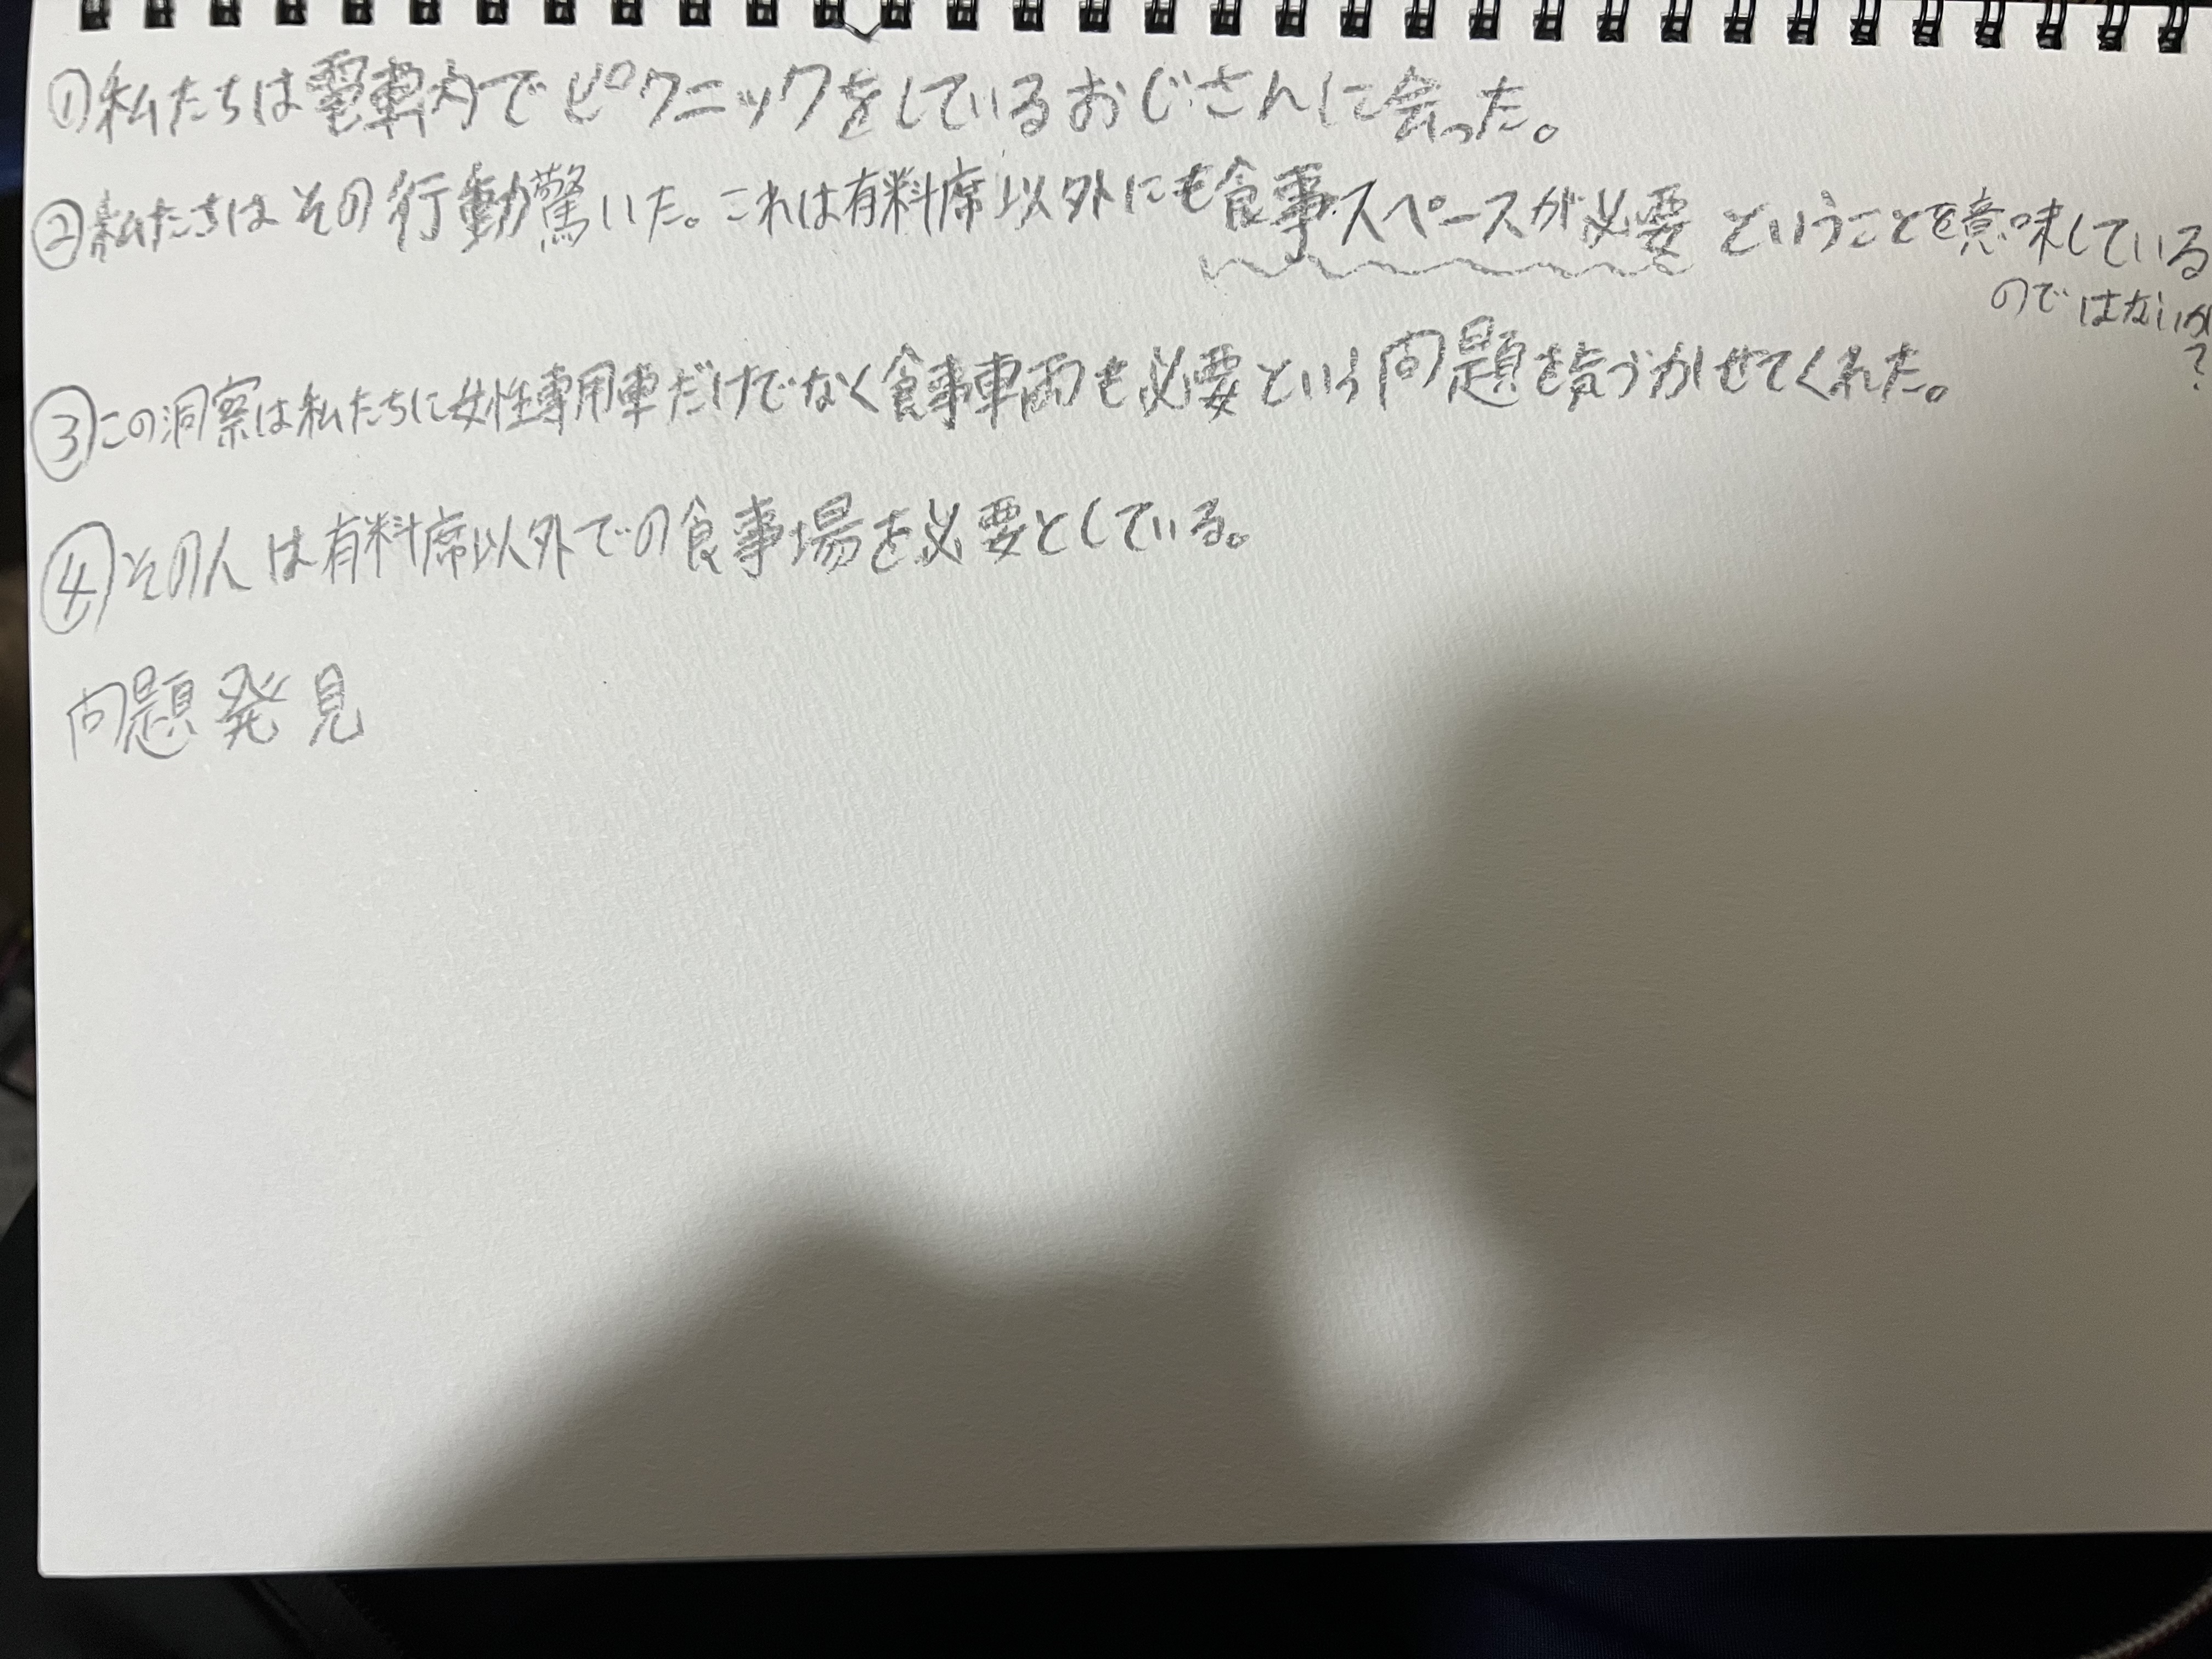 ①私たちは電車内でピクニックをしているおじさんに会った。
②私たちはその行動驚いた。これは有料席以外にも食事スペースが必要ということを意味している
のではないか
?
③この洞察は私たちに女性専用車だけでなく食事車両も必要という問題を気づかせてくれた。
④その人は有料席以外での食事場を必要としている。
問題発見